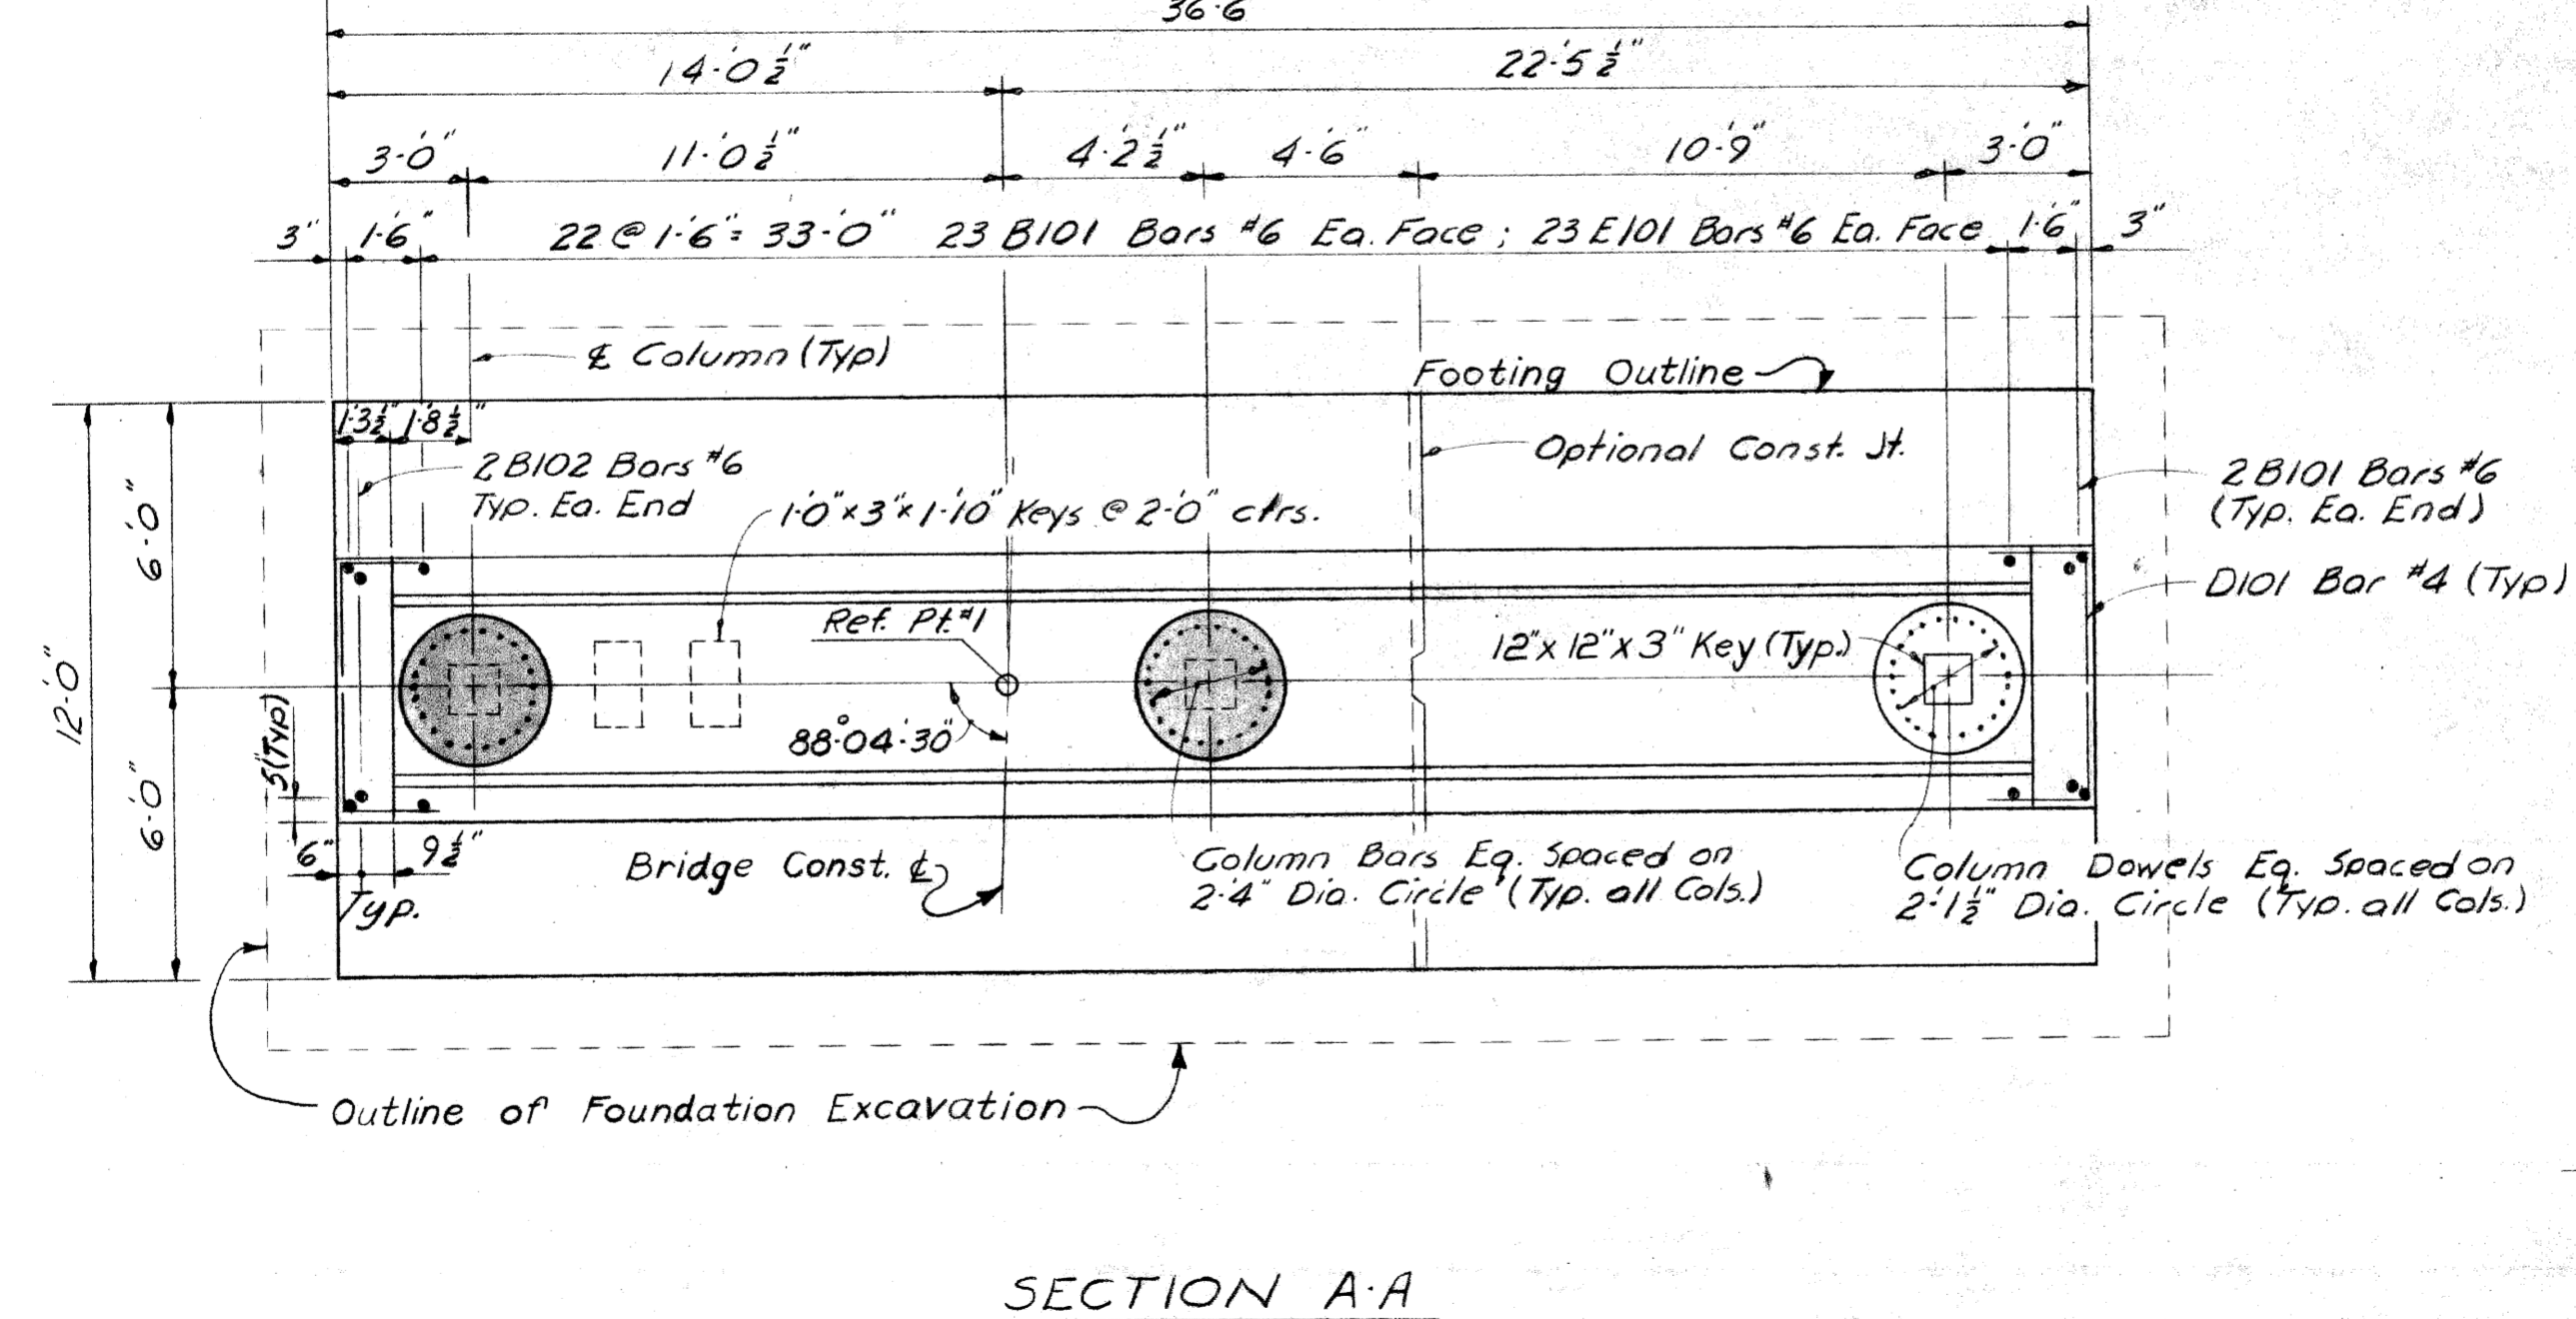 36'-6
14'-0 1/2" 22'-5 1/2"
3'-0" 11'-0 1/2" 4'-2 1/2" 4'-6" 10'-9" 3'-0"
3" 1'-6" 22 @ 1'-6" = 33'-0" 23 B101 Bars #6 Ea. Face ; 23 E101 Bars #6 Ea. Face 1'-6" 3"
℄ Column (Typ)
Footing Outline
1'-3 1/2" 1'-8 1/2"
Optional Const. Jt.
2 B102 Bars #6
Typ. Ea. End
2 B101 Bars #6
(Typ. Ea. End)
1'-0" x 3" x 1'-10" Keys @ 2'-0" ctrs.
D101 Bar #4 (Typ)
6'-0"
12'-0"
6'-0"
Ref. Pt. #1
12" x 12" x 3" Key (Typ.)
88°-04'-30"
5" (Typ)
6" 9 1/2"
Typ.
Bridge Const. ℄
Column Bars Eq. Spaced on
2'-4" Dia. Circle (Typ. all Cols.)
Column Dowels Eq. Spaced on
2'-1 1/2" Dia. Circle (Typ. all Cols.)
Outline of Foundation Excavation
SECTION A-A